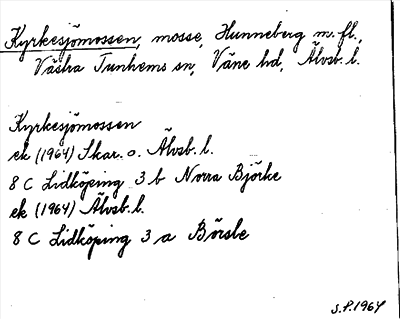 Kyrkesjömossen, mosse, Hunneberg m.fl.,
Västra Tunhems sn, Väne hd, Älvsb. l.
Kyrkesjömossen
ek (1964) Skar. o. Älvsb. l.
8 C Lidköping 3 b Norra Björke
ek (1964) Älvsb. l.
8 C Lidköping 3 a Börsle
S.P. 1967